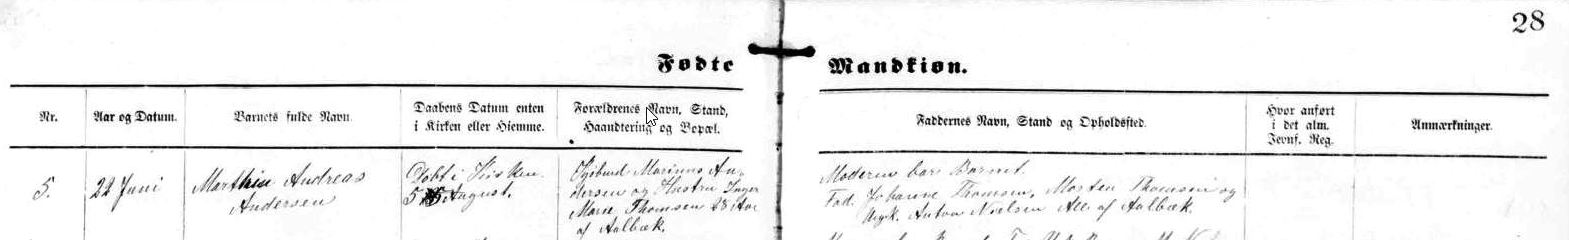 28
Fødte Mandkiøn.
Nr.
Aar og Datum.
Barnets fulde Navn.
Daabens Datum enten
i Kirken eller Hiemme.
Forældrenes Navn, Stand,
Haandtering og Bopæl.
Faddernes Navn, Stand og Opholdssted.
Hvor anført
i det alm.
Jevnf. Reg.
Anmærkninger.
5.
22 Juni
Marthin Andreas
Andersen
Døbt i Kirken
5 August.
Marinus An-
dersen og Hustru Inger
Marie Thomsen 28 Aar
af Aalbæk.
Moderen bar Barnet.
Fad. Johanne Thomsen, Morten Thomsen og
Anton Nielsen Alle af Aalbæk.